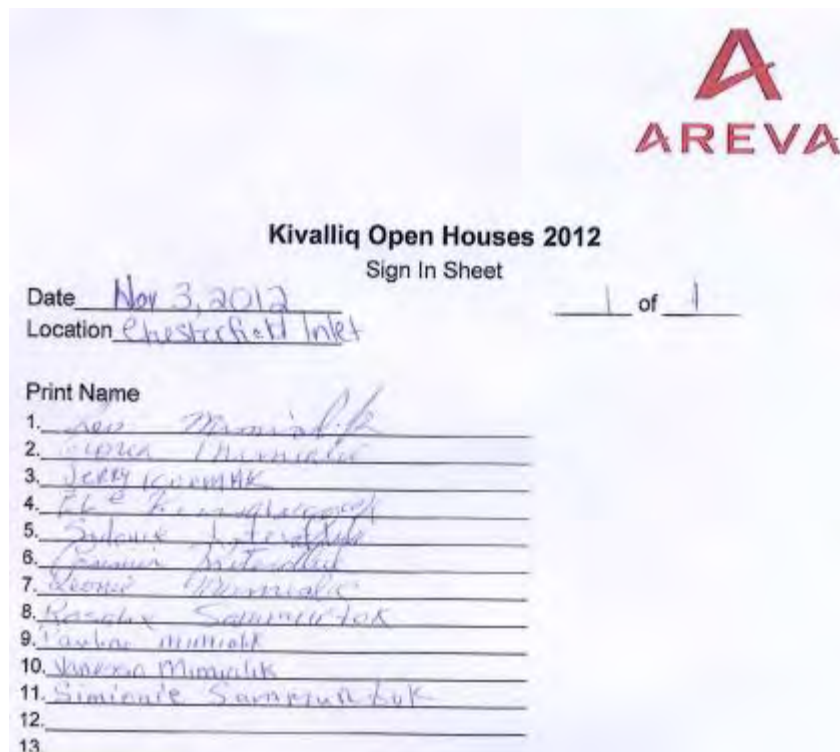 AREVA
Kivalliq Open Houses 2012
Sign In Sheet
Date Nov 3, 2012 1 of 1
Location Chesterfield Inlet
Print Name
1. Leo Mimialik
2. Mimialik
3. JERRY
4.
5. Sydonie
6.
7. Leonie Mimialik
8. Rosalie Sammurtok
9. Pauline mimialik
10. Vanessa Mimialik
11. Simionie Sammurtok
12.
13.